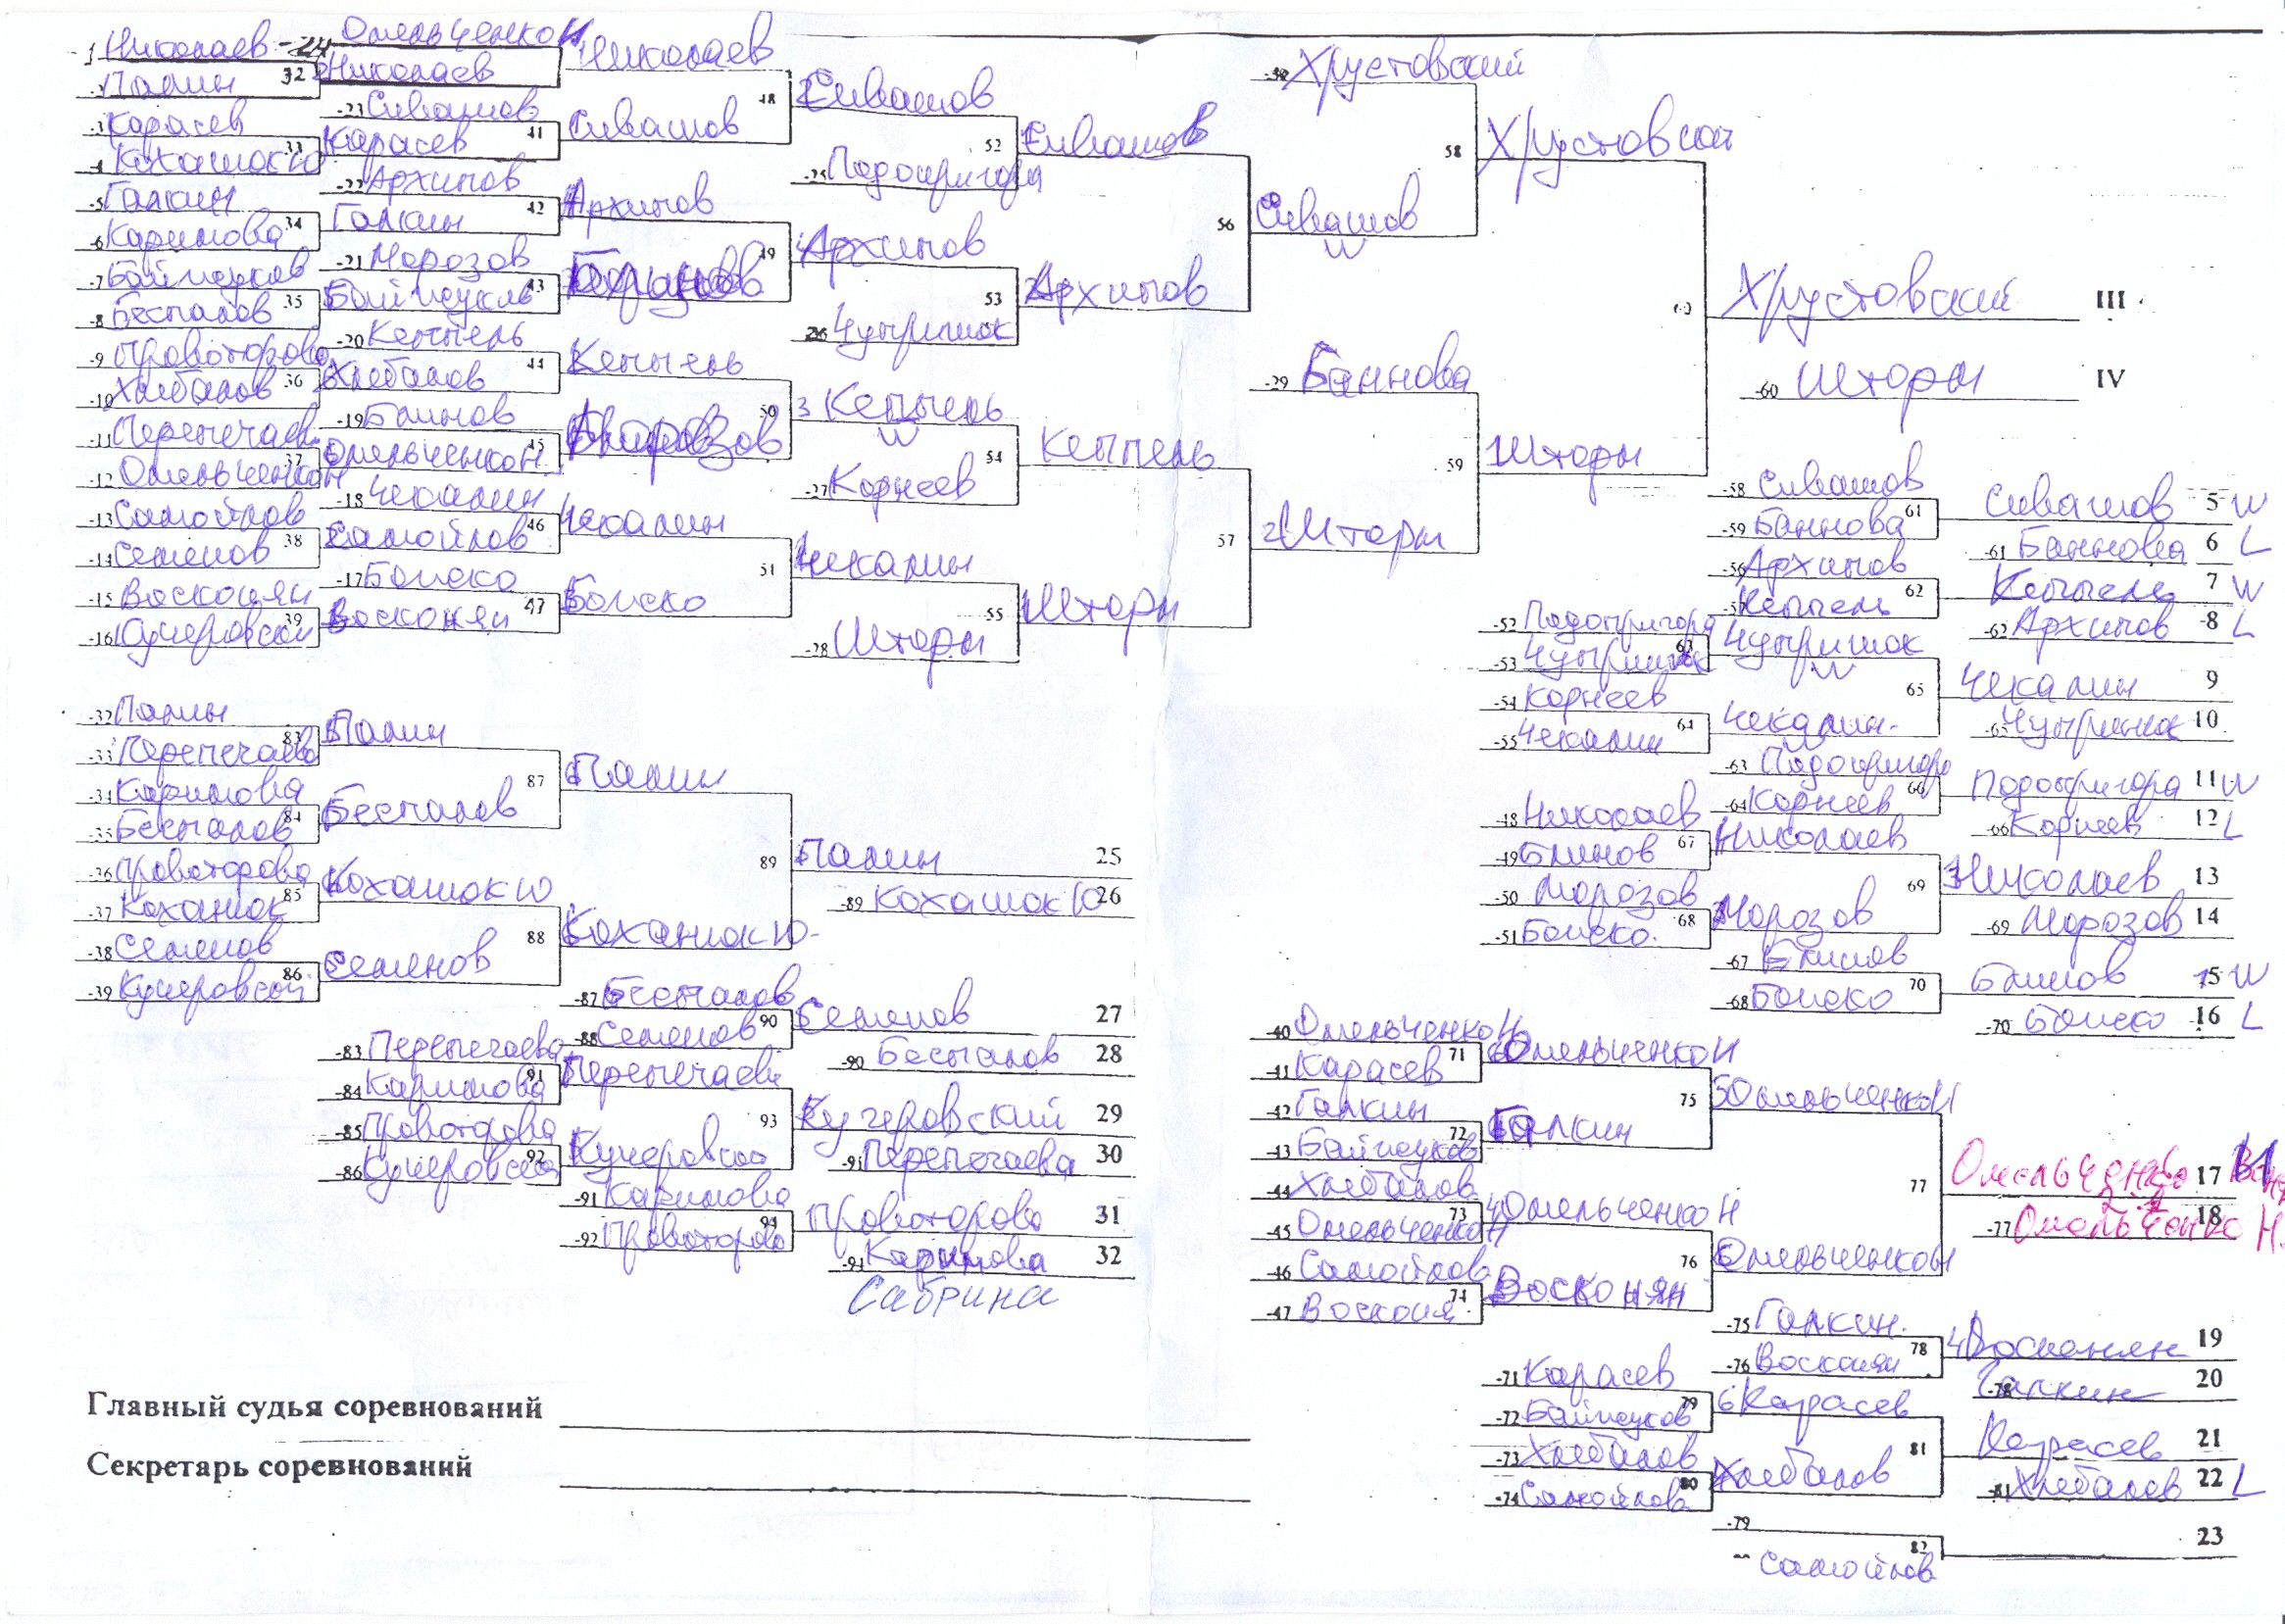 -1 Николаев
-2 Палин
32 Николаев
-24 Омельченко И
-3 Карасев
-4 Коханюк Ю
33 Карасев
-23 Сивашов
-5 Галкин
-6 Каримова
34 Галкин
-22 Архипов
-7 Баймеуков
-8 Беспалов
35
-21 Морозов
-9 Провоторова
-10 Хлебалов
36 Хлебалов
-20 Кеппель
-11 Перепечаева
-12 Омельченко Н
37 Омельченко Н.
-19 Блинов
-13 Самойлов
-14 Семенов
38 Самойлов
-18 Чекалин
-15 Восконян
-16 Кучеровский
39 Восконян
-17 Боиско
Николаев
41 Сивашов
42 Архипов
43
44 Кеппель
45
46 Чекалин
47 Боиско
48 Сивашов
-25 Подопригора
49 Архипов
-26 Чупринюк
50 3 Кеппель
W
-27 Корнеев
51 Чекалин
-28 Шторм
52 Сивашов
53 Архипов
54 Кеппель
55 Шторм
-30 Хрустовский
56 Сивашов
W
-29 Баннова
57 2 Шторм
58 Хрустовский
59 Шторм
Хрустовский III
-60 Шторм IV
-58 Сивашов
-59 Баннова
61 Сивашов 5 W
-61 Баннова 6 L
-56 Архипов
-57 Кеппель
62 Кеппель 7 W
-62 Архипов 8 L
-52 Подопригора
-53 Чупринюк
63 Чупринюк
W
-54 Корнеев
-55 Чекалин
64 Чекалин
W
65 Чекалин 9
-65 Чупринюк 10
-63 Подопригора
-64 Корнеев
66 Подопригора 11 W
-66 Корнеев 12 L
-48 Николаев
-49 Блинов
67 Николаев
-50 Морозов
-51 Боиско.
68 Морозов
69 Николаев 13
-69 Морозов 14
-67 Блинов
-68 Боиско
70 Блинов 15 W
-70 Боиско 16 L
-40 Омельченко И
-41 Карасев
71 Омельченко И
-42 Галкин
-43 Баймеуков
72 Галкин
-44 Хлебалов
-45 Омельченко Н
73 Омельченко Н
-46 Самойлов
-47 Восконян
74 Восконян
75 Омельченко И
76 Омельченко Н
77 Омельченко 17
-77 Омельченко Н. 18
-75 Галкин.
-76 Восконян
78 Восконян 19
-78 Галкин 20
-71 Карасев
-72 Баймеуков
79 6 Карасев
-73 Хлебалов
-74 Самойлов
80 Хлебалов
81 Карасев 21
-81 Хлебалов 22 L
-79
Самойлов
82 23
-32 Палин
-33 Перепечаева
83 Палин
-34 Каримова
-35 Беспалов
84 Беспалов
-36 Провоторова
-37 Коханюк
85 Коханюк Ю
-38 Семенов
-39 Кучеровский
86 Семенов
87 Палин
88 Коханюк Ю.
89 Палин 25
-89 Коханюк Ю 26
-87 Беспалов
-88 Семенов
90 Семенов 27
-90 Беспалов 28
-83 Перепечаева
-84 Каримова
91 Перепечаева
-85 Провоторова
-86 Кучеровский
92 Кучеровский
93 Кучеровский 29
-91 Перепечаева 30
-91 Каримова
-92 Провоторова
94 Провоторова 31
-94 Каримова 32
Сабрина
Главный судья соревнований
Секретарь соревнований